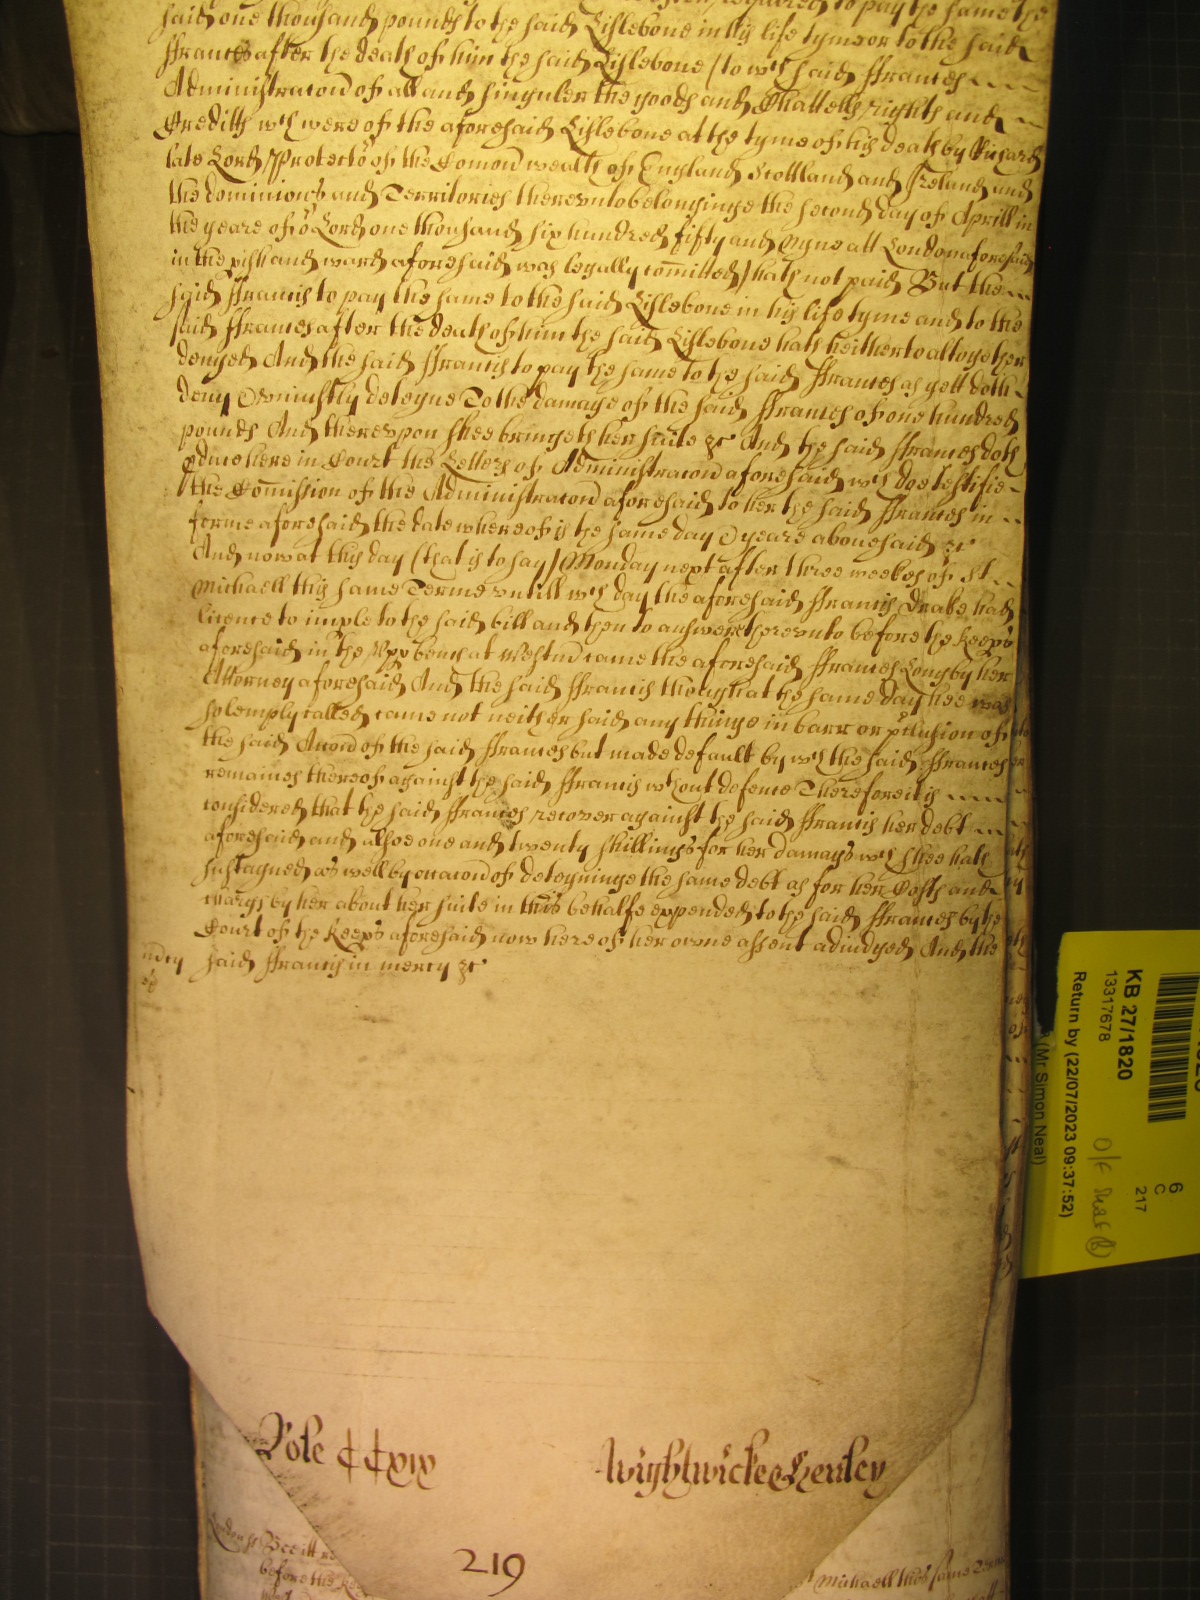 to pay the same the
said one thousand pounds to the said Lislebone in his life tyme or to the said
Frances after the death of him the said Lislebone (to wch said Frances
Administracon of all and singuler the goods and Chattells rights and
Creditts wch were of the aforesaid Lislebone at the tyme of his death by Richard
late Lord Protector of the Comon wealth of England Scottland and Ireland and
the dominions and Territories therevnto belonginge the second day of Aprill in
the yeare of or Lord one thousand six hundred fifty and nyne att London aforesaid
in the pish and ward aforesaid was legally comitted) hath not paid But the
said Francis to pay the same to the said Lislebone in his life tyme and to the
said Frances after the death of him the said Lislebone hath hitherto altogether
denyed And the said Francis to pay the same to the said Frances as yett doth
deny & vniustly deteyne To the damage of the said Frances of one hundred
pounds And therevpon shee bringeth her suite &c And the said Frances doth
pduce here in Court the Letters of Administracon aforesaid wch doe testifie
the Comission of the Administracon aforesaid to her the said Frances in
forme aforesaid the date whereof is the same day & yeare abouesaid &c
And now at this day (that is to say) Monday next after three weekes of St
Michaell this same Terme vntill wch day the aforesaid Francis Drake had
licence to imple to the said bill and then to answere therevnto before the Keeps
aforesaid in the Vpp bench at Westmr came the aforesaid Frances Long by her
Attorney aforesaid And the said Francis though at the same day hee was
solemply called came not neither said any thinge in barr or pclusion of
the said Accon of the said Frances but made default by wch the said Frances
remaines thereof against the said Francis wthout defence Therefore it is
considered that the said Frances recover against the said Francis her debt
aforesaid and alsoe one and twenty shillings for her damags wch shee hath
sustayned as well by occacon of deteyninge the same debt as for her Costs and
chargs by her about her suite in this behalfe expended to the said Frances by the
Court of the Keeps aforesaid now here of her owne assent adiudged And the
said Francis in mercy &c
mcy
KB 27/1820
13317678
Return by (22/07/2023 09:37:52)
(Mr Simon Neal)
6
C
217
Role CCxix
Wightwicke & Henley
219
London ss
before the Kee
Michaell this same Terme